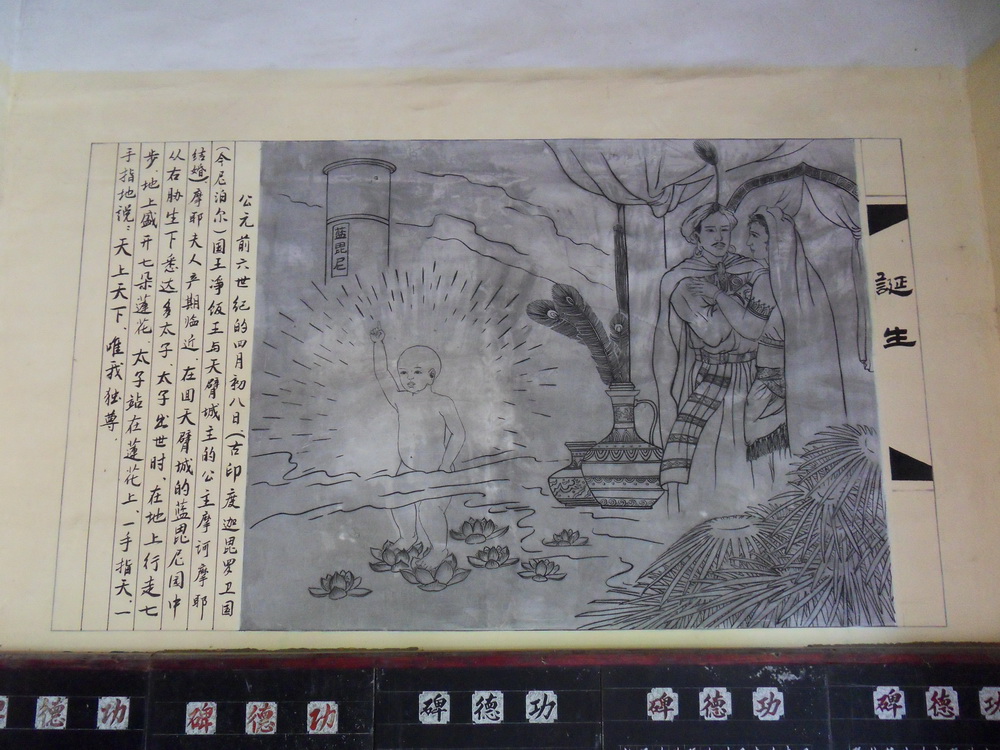 誕生
蓝毘尼
公元前六世纪的四月初八日(古印度迦毘罗卫国
(今尼泊尔)国王净饭王与天臂城主的公主摩诃摩耶
结婚)摩耶夫人产期临近、在回天臂城的蓝毘尼园中
从右胁生下悉达多太子、太子出世时、在地上行走七
步、地上盛开七朵莲花、太子站在莲花上、一手指天、一
手指地说：天上天下、唯我独尊.
碑德功
碑德功
碑德功
碑德功
碑德功